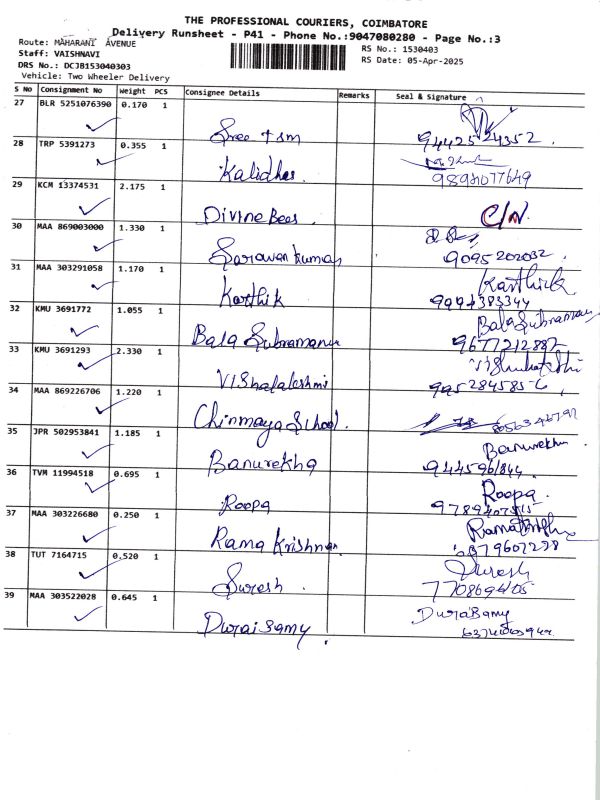 THE PROFESSIONAL COURIERS, COIMBATORE
Delivery Runsheet - P41 - Phone No.:9047080280 - Page No.:3
Route: MAHARANI AVENUE
Staff: VAISHNAVI
DRS No.: DCJB153040303
Vehicle: Two Wheeler Delivery
RS No.: 1530403
RS Date: 05-Apr-2025
S No Consignment No Weight PCS Consignee Details Remarks Seal & Signature
27 BLR 5251076390 0.170 1 Sree tsm 94425 24352
28 TRP 5391273 0.355 1 Kalidhas 9894077649
29 KCM 13374531 2.175 1 Divine Bees C/N
30 MAA 869003000 1.330 1 Sarawan Kumar 9095202032
31 MAA 303291058 1.170 1 Karthik Karthick 9994383344
32 KMU 3691772 1.055 1 Bala Subramani Bala Subramani 9677212882
33 KMU 3691293 2.330 1 Vishalalashmi
34 MAA 869226706 1.220 1 Chinmaya School
35 JPR 502953841 1.185 1 Banurekha Banurekha
36 TVM 11994518 0.695 1 Roopa Roopa
37 MAA 303226680 0.250 1 Rama Krishnan
38 TUT 7164715 0.520 1 Suresh Suresh
39 MAA 303522028 0.645 1 Duraisamy DuraiSamy